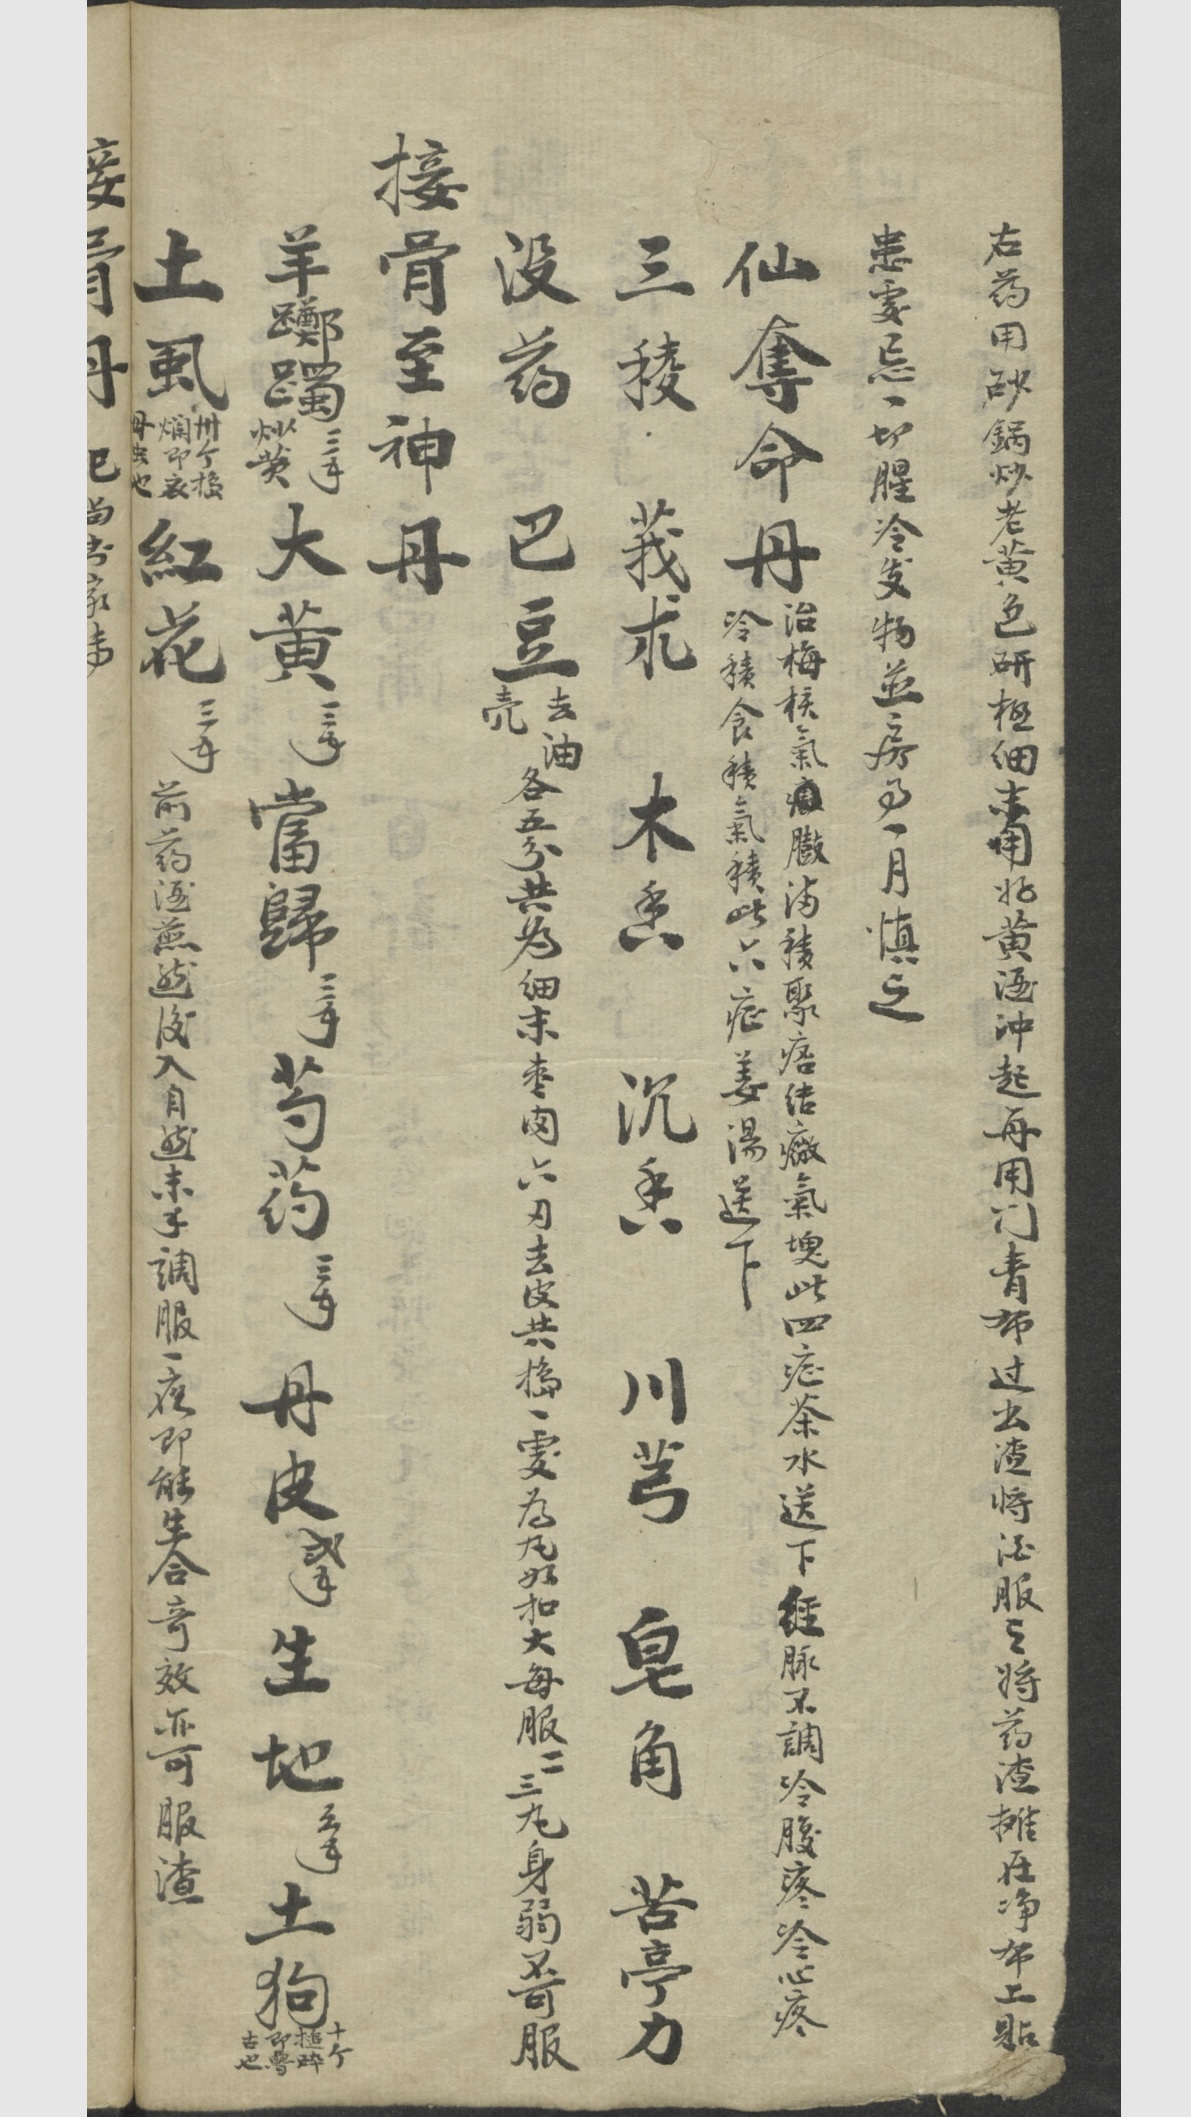 右药用砂鍋炒老黄色研極細末用好黄酒冲起再用门青布过出渣将酒服之将药渣摊在净布上貼
患處忌一切腥冷发物並房事一月慎之
仙奪命丹 治梅核氣臌满積聚痞结癥氣塊此四症茶水送下經脉不調冷腹疼冷心疼
冷積食積氣積此六症姜湯送下
三稜 莪朮 木香 沉香 川芎 皂角 苦亭力
没药 巴豆 去油壳 各五分共为细末枣肉六刃去皮共搗一處为丸如扣大每服二三丸身弱不可服
接骨至神丹
羊躑躅 三手 炒黄 大黄 三手 當歸 三手 芍药 三手 丹皮 弍手 生地 五手 土狗 十个搥碎即魯古也
土虱 卅个搗爛即衣母虫也 紅花 三手 前药酒煎然後入自然末手調服一夜即能生合奇效不可服渣
接骨丹